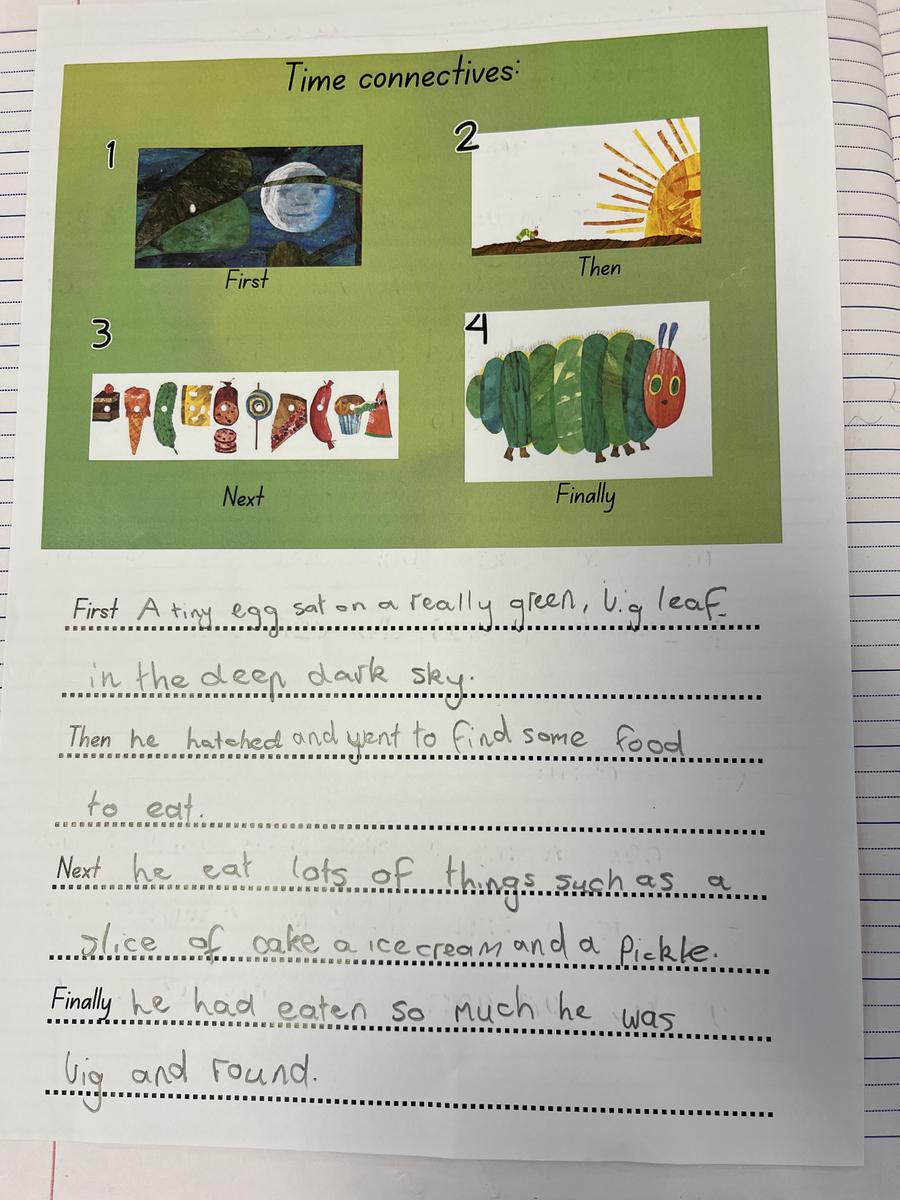 Time connectives:
1
2
First
Then
3
4
Next
Finally
First A tiny egg sat on a really green, big leaf
in the deep dark sky.
Then he hatched and went to find some food
to eat.
Next he eat lots of things such as a
slice of cake a icecream and a Pickle.
Finally he had eaten so much he was
big and round.